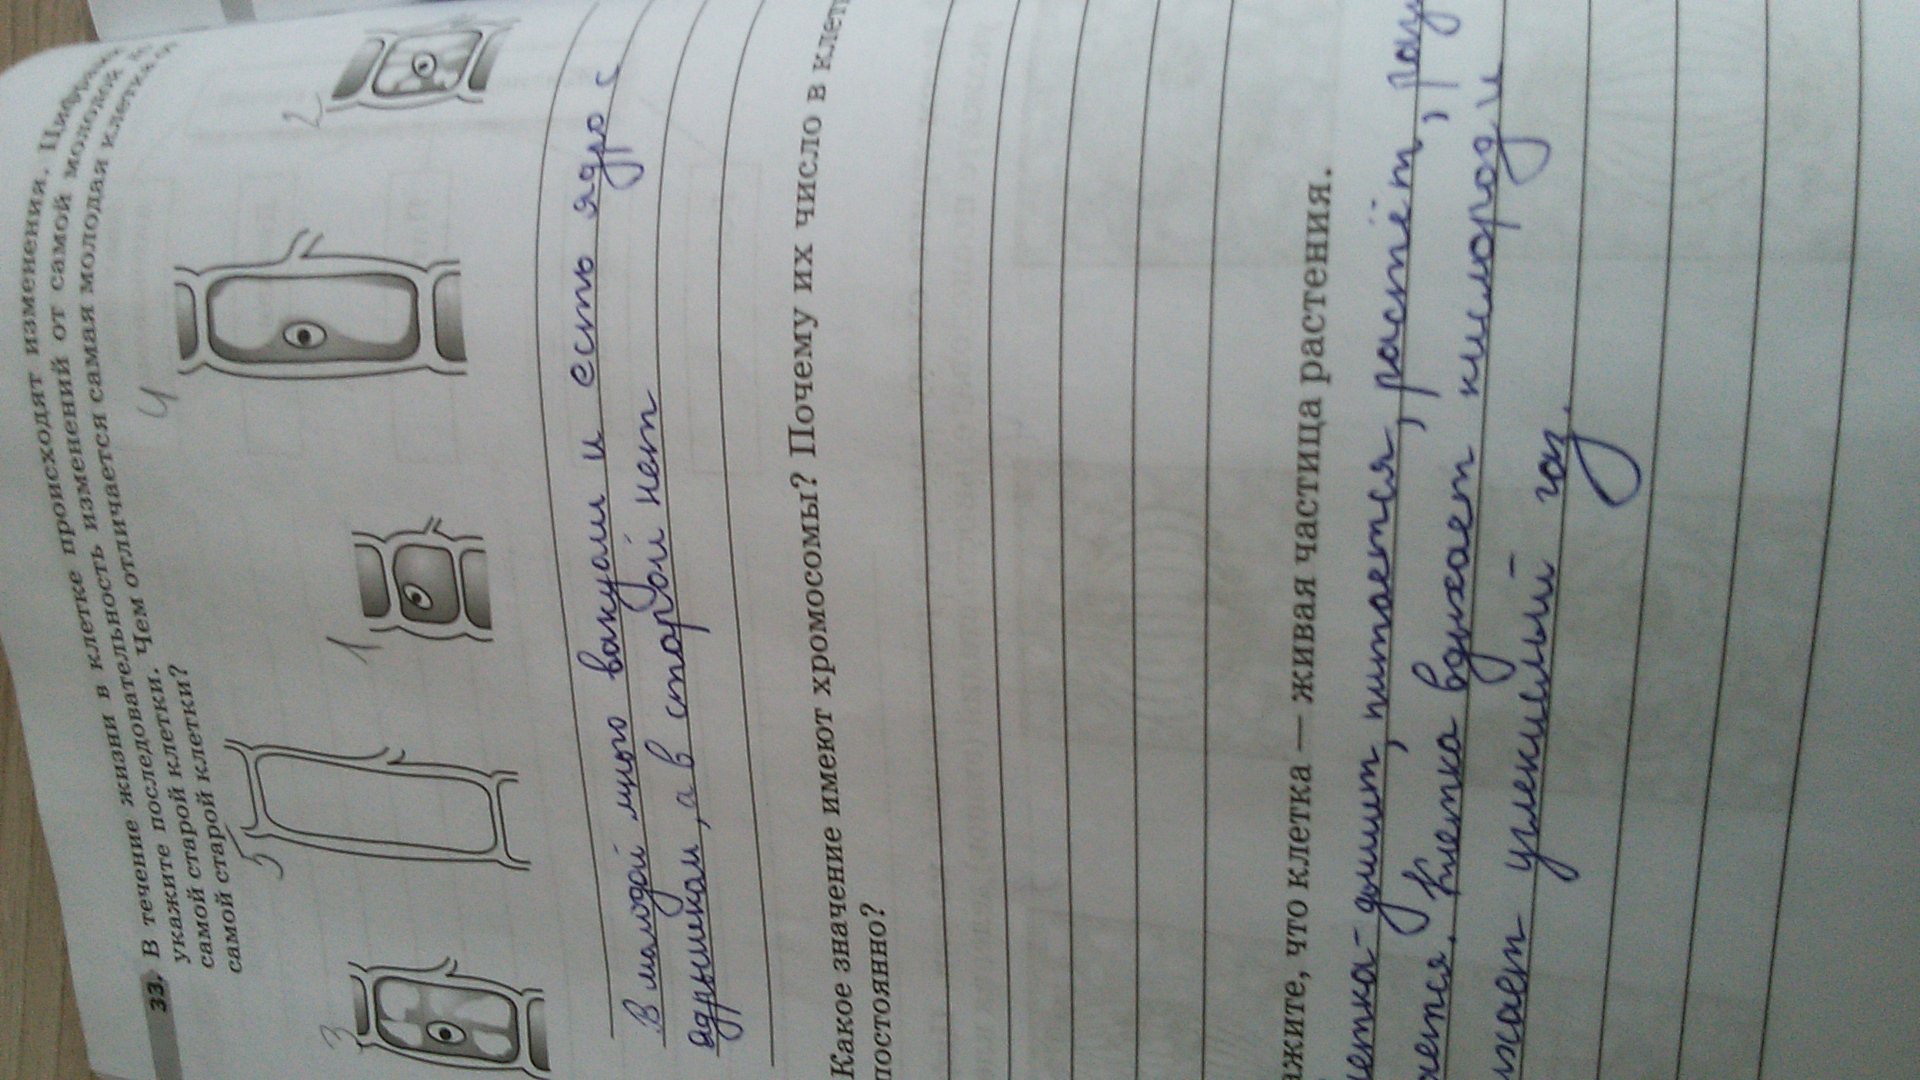 33. В течение жизни в клетке происходят изменения. Цифрами
укажите последовательность изменений от самой молодой до
самой старой клетки. Чем отличается самая молодая клетка от
самой старой клетки?
3
5
1
4
2
В молодой много вакуоли и есть ядро с
ядрышком, а в старой нет
Какое значение имеют хромосомы? Почему их число в клет
постоянно?
ажите, что клетка — живая частица растения.
летка - дышит, питается, растёт,
ается. Клетка вдыхает кислород и
углекислый газ.